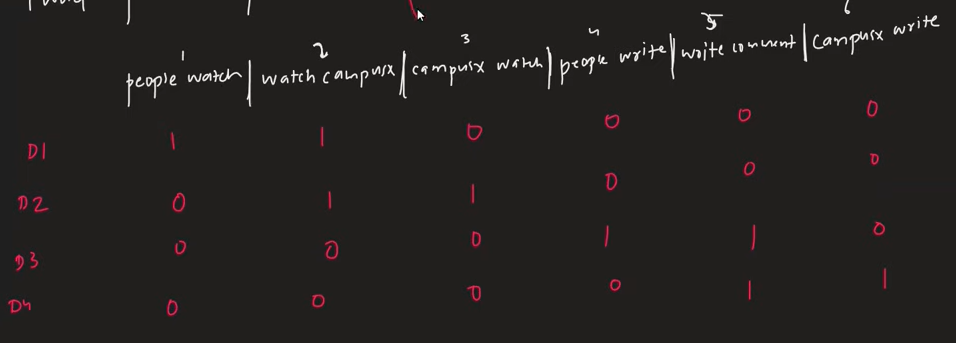 1 2 3 4 5 6
people watch | watch campusx | campusx watch | people write | write comment | campusx write
D1 1 1 0 0 0 0
D2 0 1 1 0 0 0
D3 0 0 0 1 1 0
D4 0 0 0 0 1 1